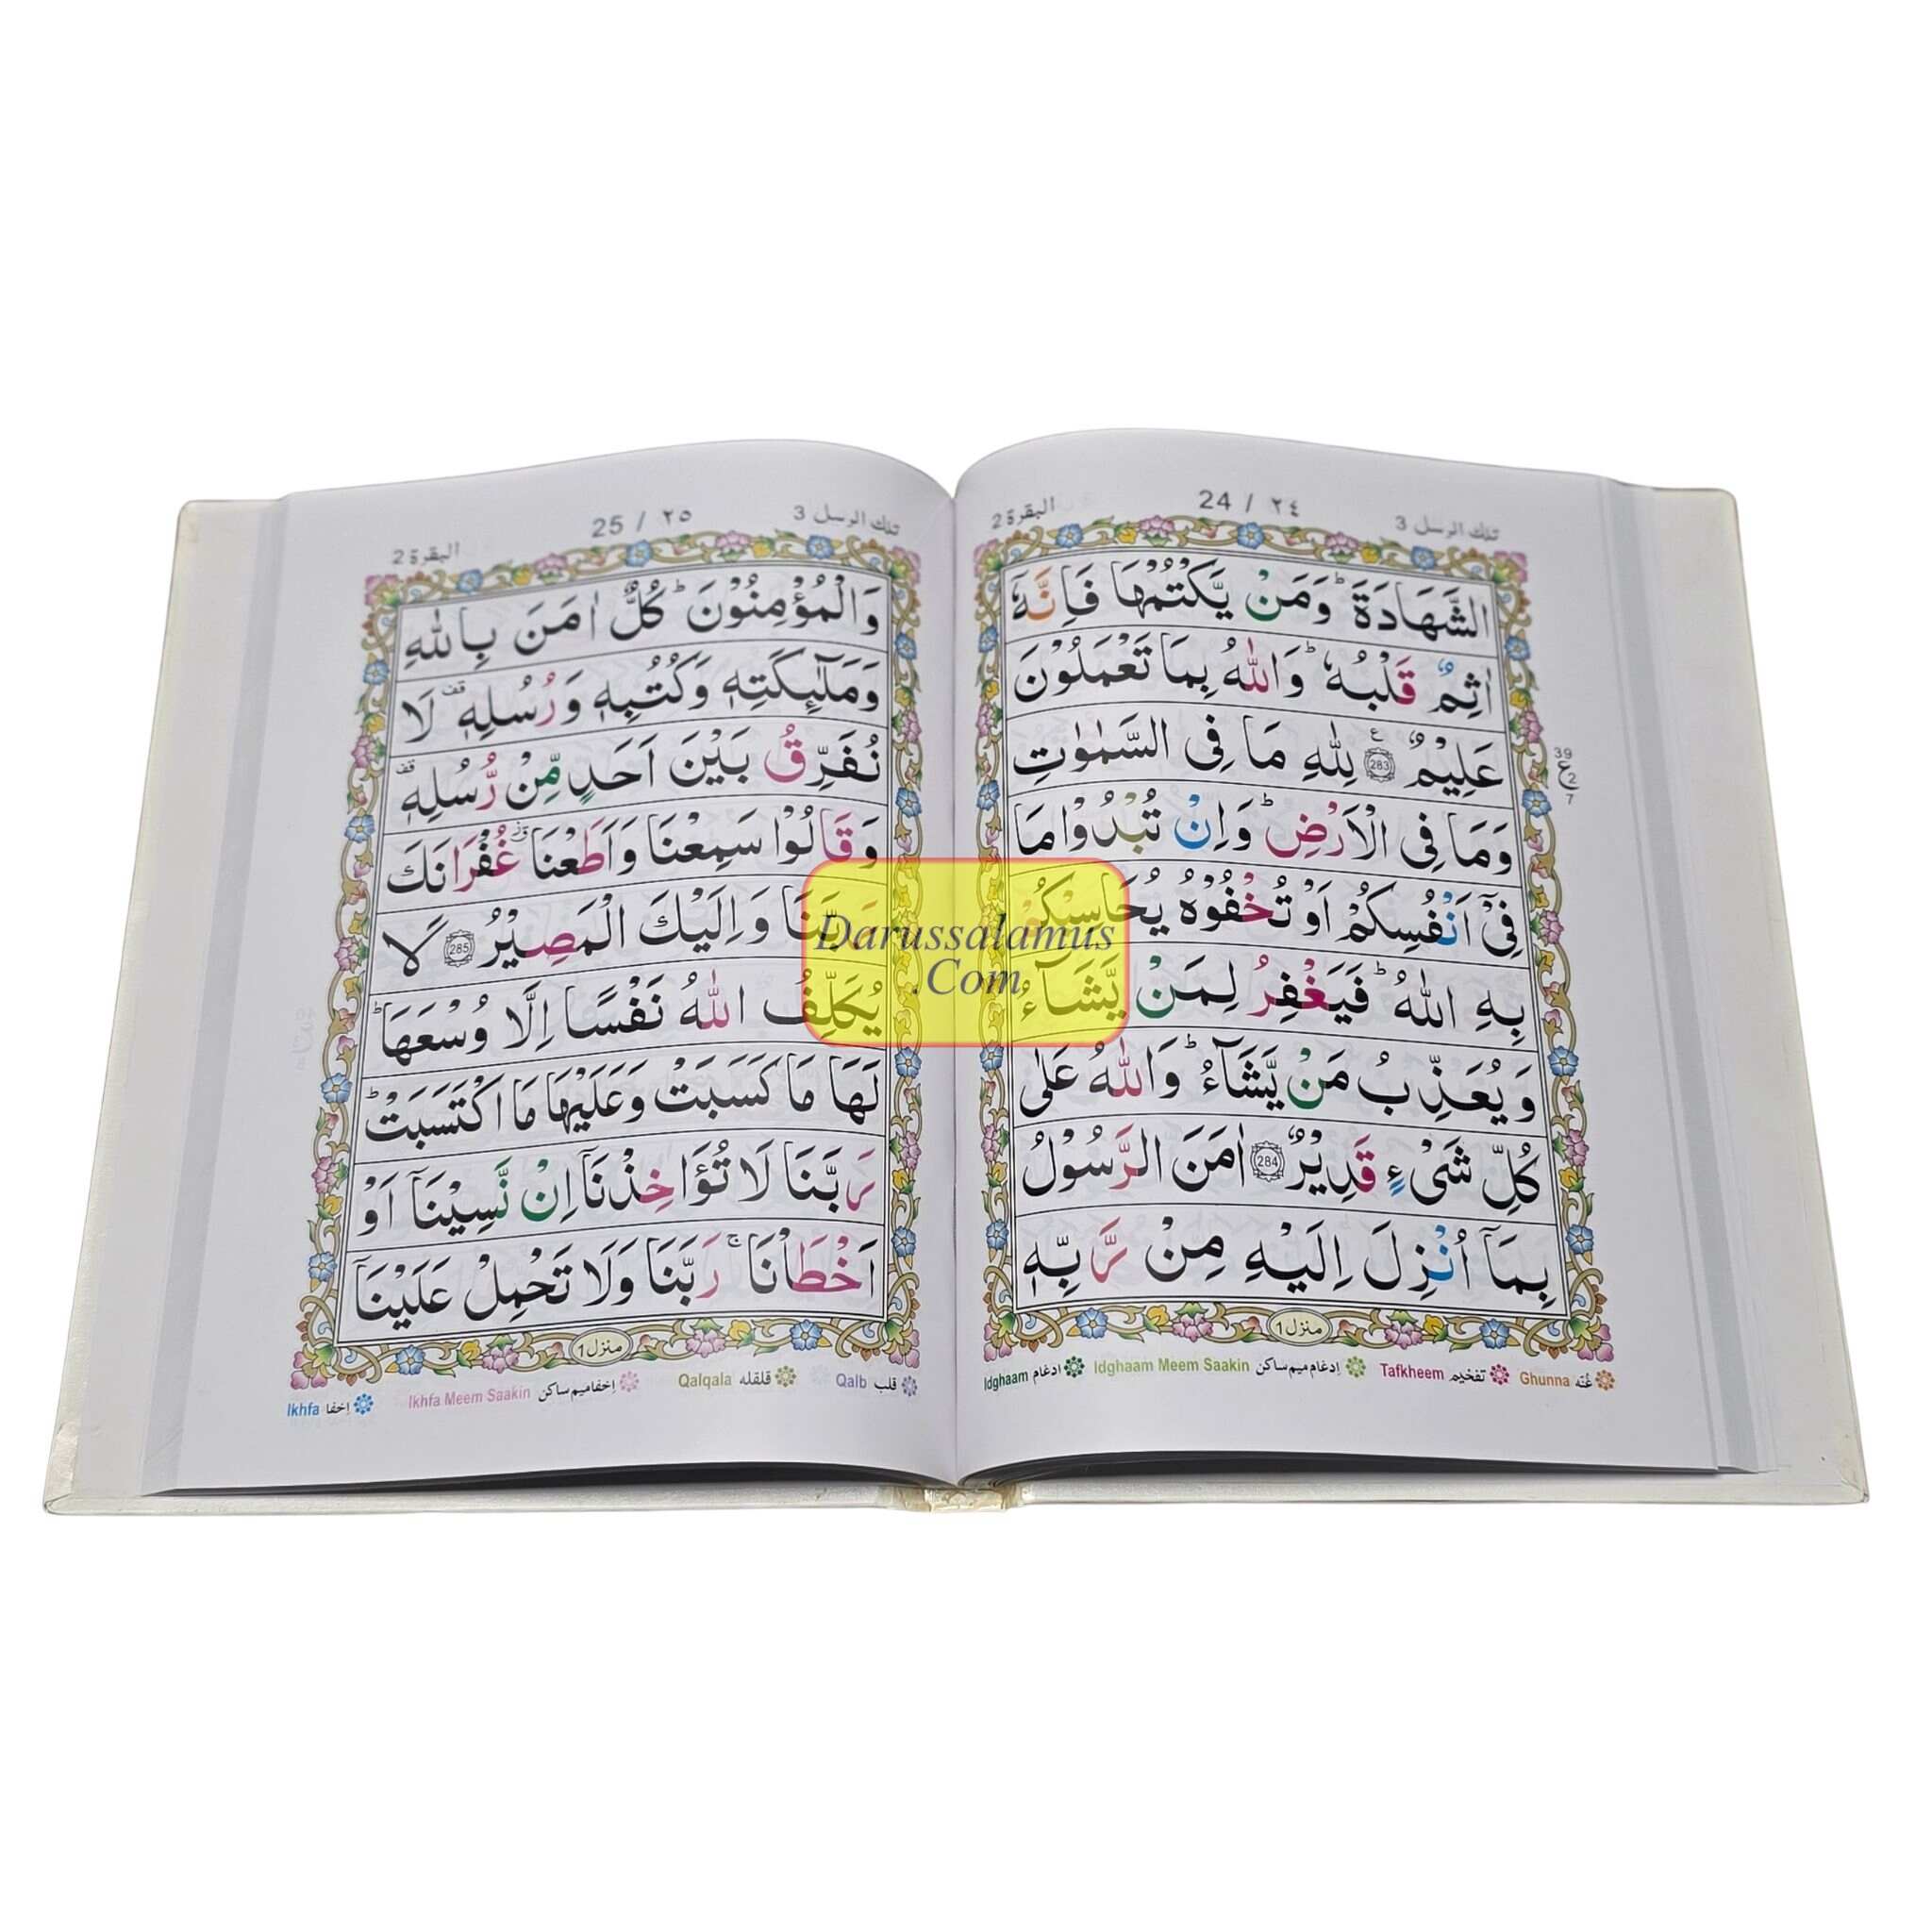 تلك الرسل 3
24 / ٢٤
البقرة 2
الشَّهَادَةَ ؕ وَمَنْ يَّكْتُمْهَا فَاِنَّهٗۤ
اٰثِمٌ قَلْبُهٗ ؕ وَاللّٰهُ بِمَا تَعْمَلُوْنَ
عَلِيْمٌ ۧ 283 لِلّٰهِ مَا فِى السَّمٰوٰتِ
وَمَا فِى الْاَرْضِ ؕ وَاِنْ تُبْدُوْا مَا
فِىْۤ اَنْفُسِكُمْ اَوْ تُخْفُوْهُ يُحَاسِبْكُمْ
بِهِ اللّٰهُ ؕ فَيَغْفِرُ لِمَنْ يَّشَآءُ
وَيُعَذِّبُ مَنْ يَّشَآءُ ؕ وَاللّٰهُ عَلٰى
كُلِّ شَىْءٍ قَدِيْرٌ 284 اٰمَنَ الرَّسُوْلُ
بِمَاۤ اُنْزِلَ اِلَيْهِ مِنْ رَّبِّهٖ
39
ع
2
7
منزل 1
غُنّه Ghunna
تفخيم Tafkheem
اِدغام ميم ساكن Idghaam Meem Saakin
ادغام Idghaam
تلك الرسل 3
25 / ٢٥
البقرة 2
وَالْمُؤْمِنُوْنَ ؕ كُلٌّ اٰمَنَ بِاللّٰهِ
وَمَلٰٓئِكَتِهٖ وَكُتُبِهٖ وَرُسُلِهٖ قف لَا
نُفَرِّقُ بَيْنَ اَحَدٍ مِّنْ رُّسُلِهٖ قف
وَقَالُوْا سَمِعْنَا وَاَطَعْنَا غُفْرَانَكَ
رَبَّنَا وَاِلَيْكَ الْمَصِيْرُ 285 لَا
يُكَلِّفُ اللّٰهُ نَفْسًا اِلَّا وُسْعَهَا ؕ
لَهَا مَا كَسَبَتْ وَعَلَيْهَا مَا اكْتَسَبَتْ ؕ
رَبَّنَا لَا تُؤَاخِذْنَاۤ اِنْ نَّسِيْنَاۤ اَوْ
اَخْطَاْنَا ۚ رَبَّنَا وَلَا تَحْمِلْ عَلَيْنَاۤ
منزل 1
قلب Qalb
قلقله Qalqala
اِخفا ميم ساكن Ikhfa Meem Saakin
اِخفا Ikhfa
Darussalamus
.Com